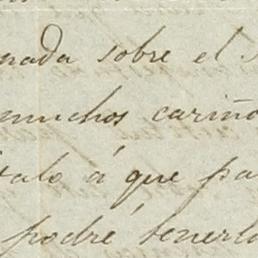 nada sobre el
muchos cariño
talo á que pa
podré tenerlo